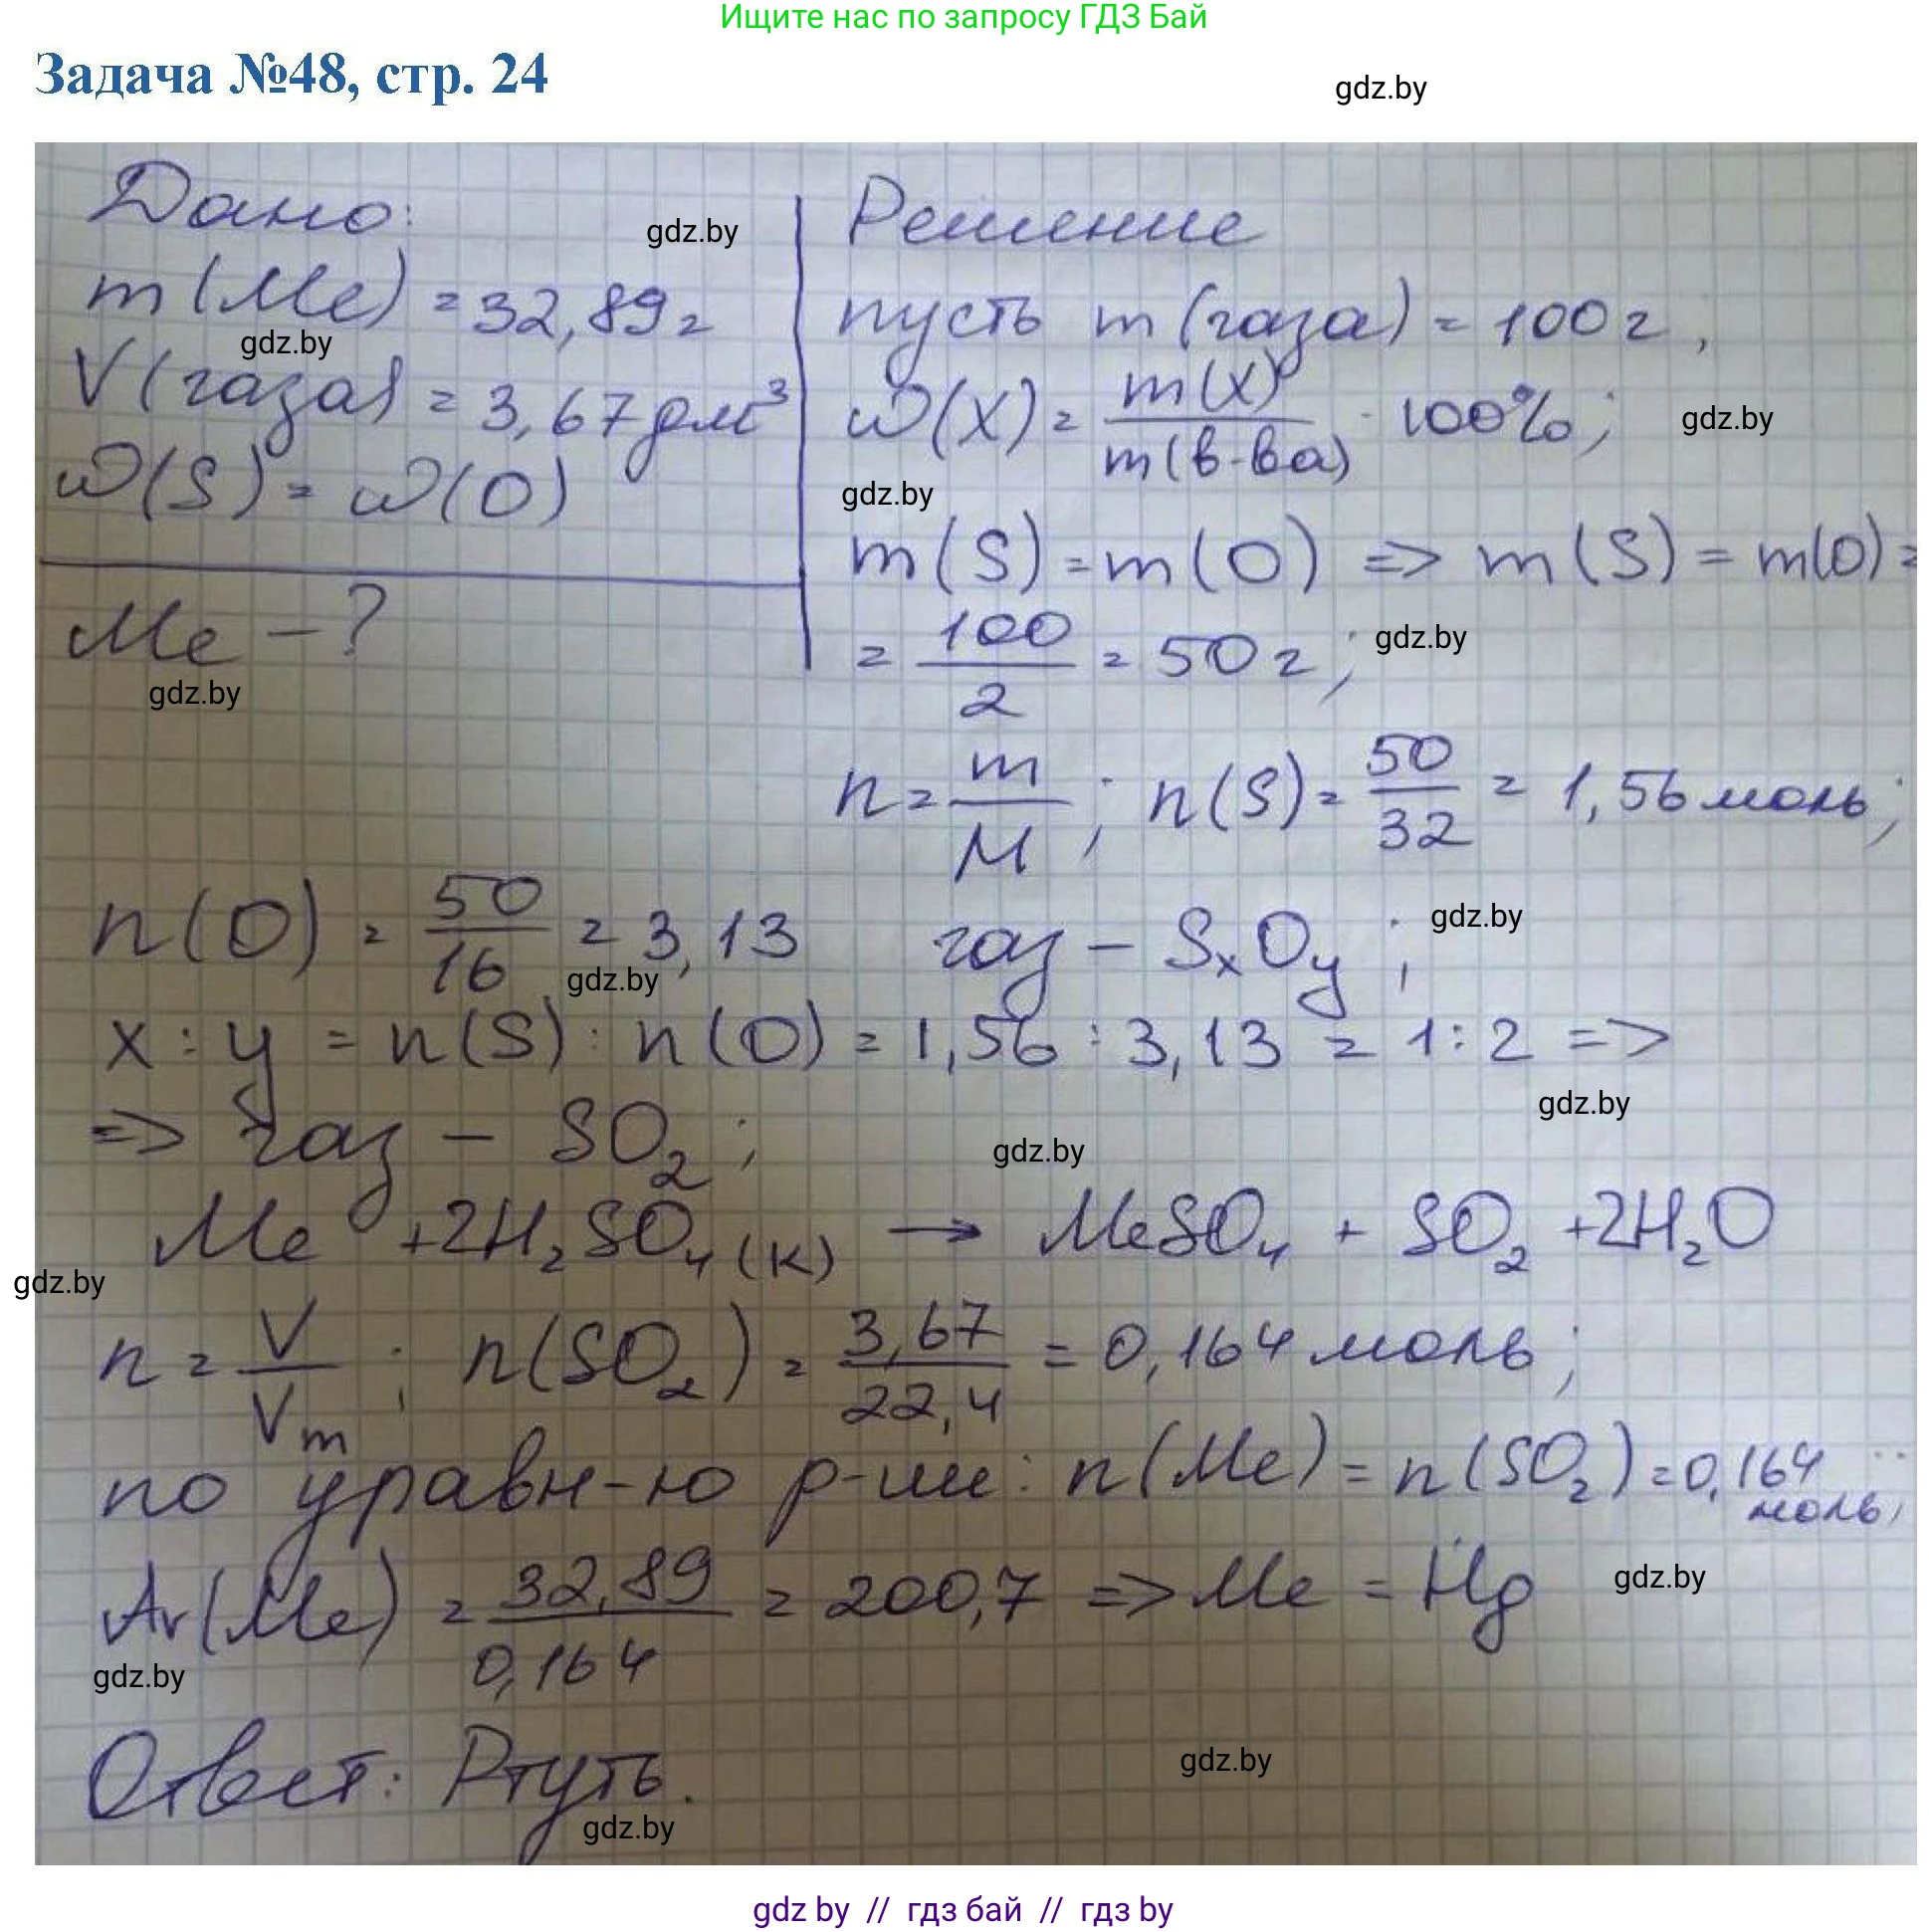 Ищите нас по запросу ГДЗ Бай
Задача №48, стр. 24
gdz.by
Дано:
gdz.by
m(Me) = 32,89г
gdz.by
V(газа) = 3,67дм³
ω(S) = ω(O)
Me - ?
gdz.by
Решение
пусть m(газа) = 100г,
ω(X) = m(X)/m(в-ва) · 100%;
gdz.by
gdz.by
m(S) = m(O) => m(S) = m(O) =
= 100/2 = 50г;
gdz.by
n = m/M; n(S) = 50/32 = 1,56моль;
n(O) = 50/16 = 3,13 газ - SxOy;
gdz.by
gdz.by
x : y = n(S) : n(O) = 1,56 : 3,13 = 1:2 =>
gdz.by
=> газ - SO₂;
gdz.by
Me + 2H₂SO₄(к) → MeSO₄ + SO₂ + 2H₂O
gdz.by
n = V/Vm; n(SO₂) = 3,67/22,4 = 0,164 моль;
по уравн-ю р-ии: n(Me) = n(SO₂) = 0,164 моль;
Ar(Me) = 32,89/0,164 = 200,7 => Me = Hg
gdz.by
gdz.by
Ответ: Ртуть.
gdz.by
gdz.by
gdz by // гдз бай // гдз by